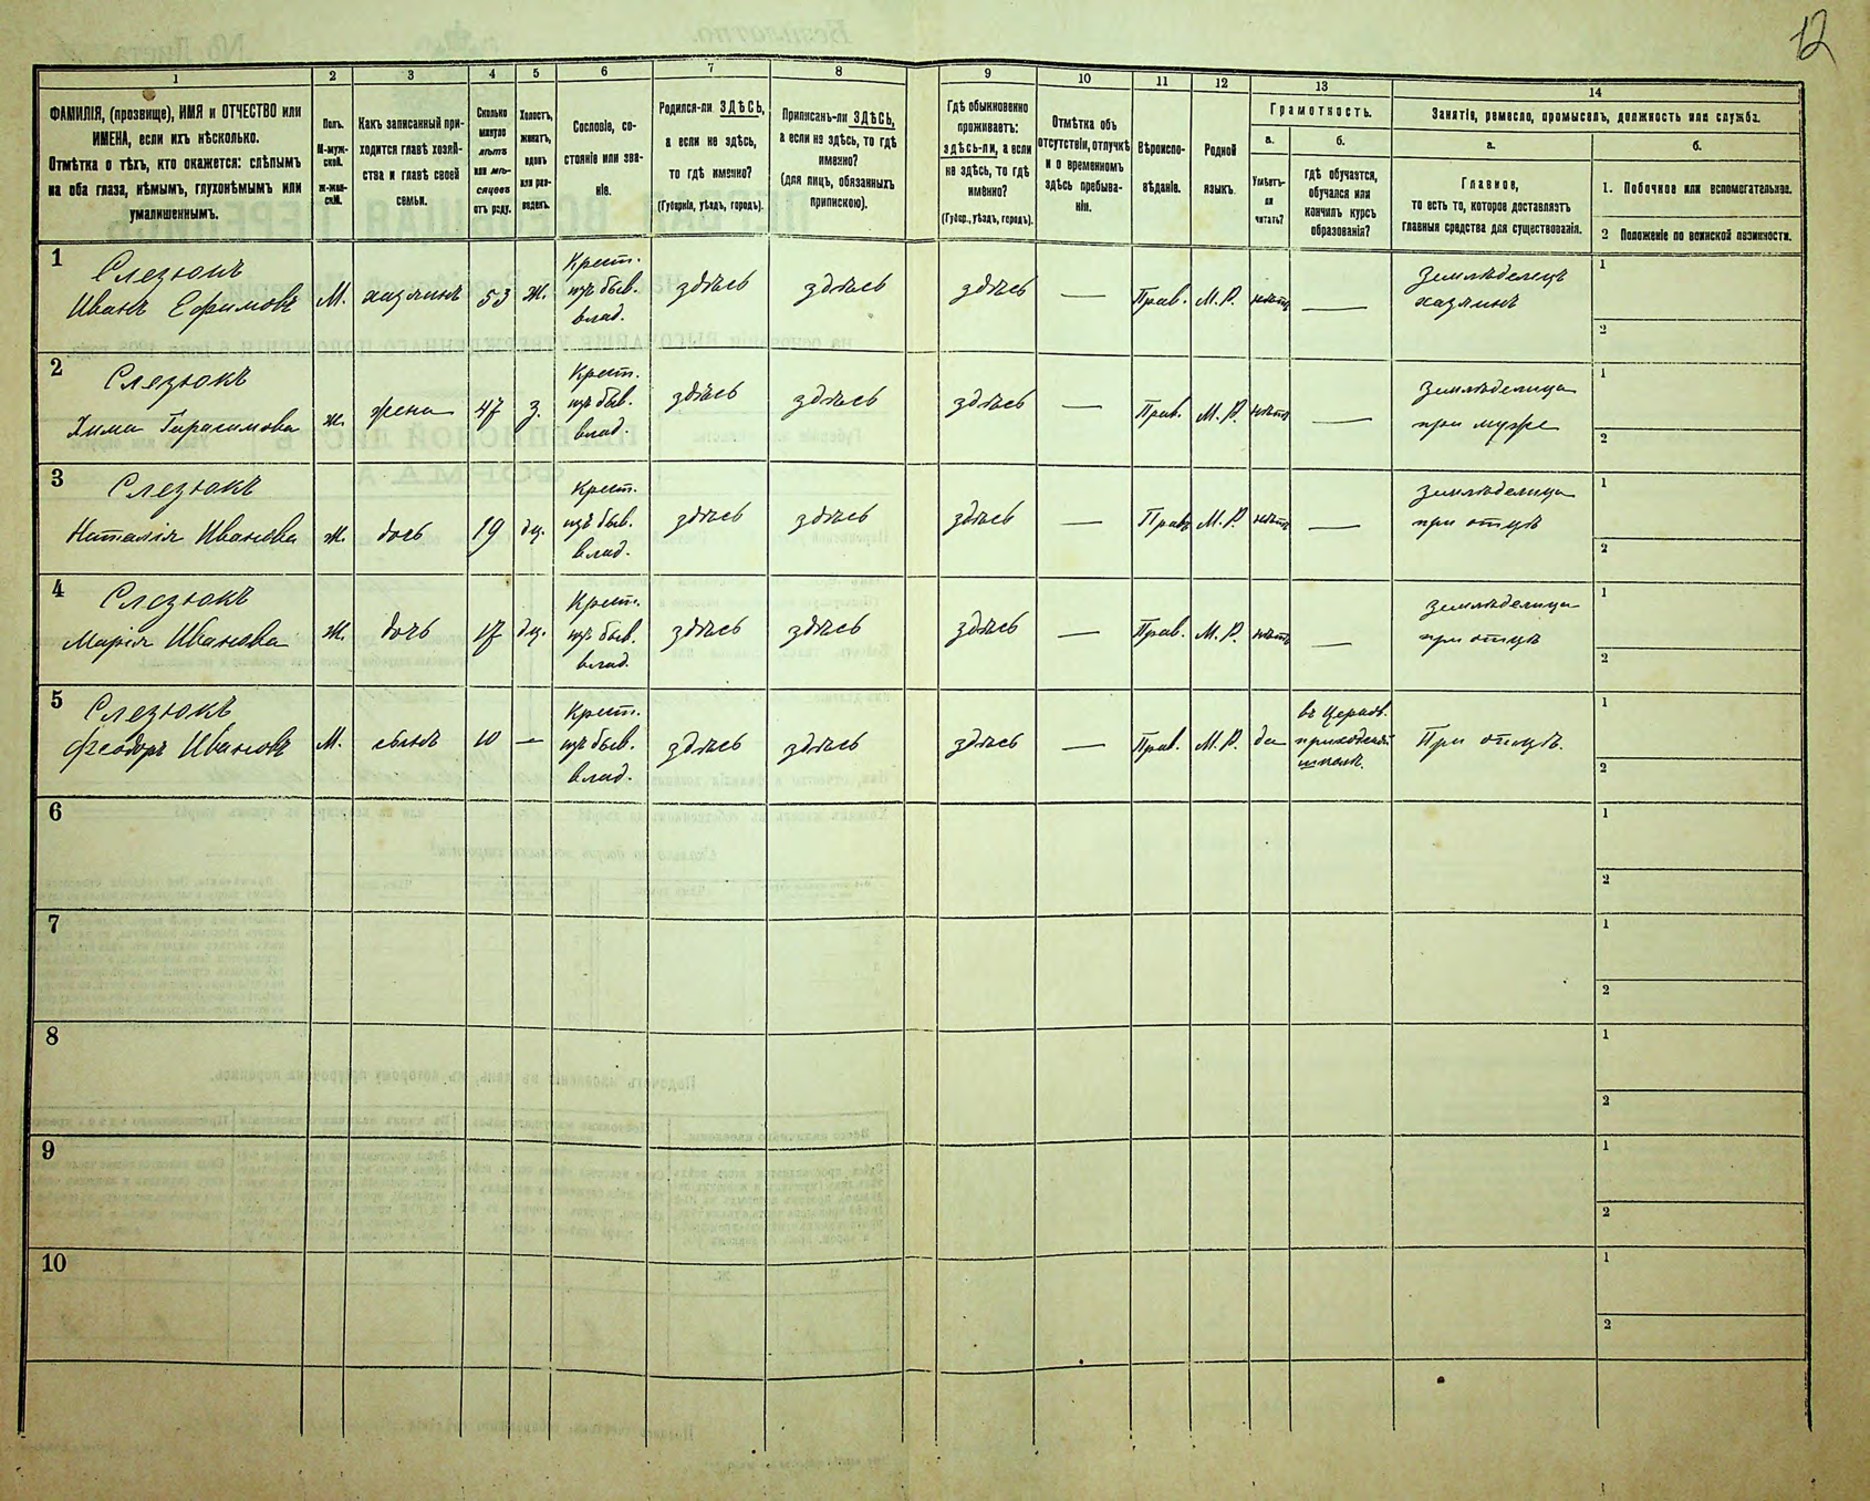 12
1
2
3
4
5
6
7
8
9
10
11
12
13
14
ФАМИЛІЯ, (прозвище), ИМЯ и ОТЧЕСТВО или
ИМЕНА, если ихъ нѣсколько.
Отмѣтка о тѣхъ, кто окажется: слѣпымъ
на оба глаза, нѣмымъ, глухонѣмымъ или
умалишеннымъ.
Полъ.
М-муж-
ской.
Ж-жен-
скій.
Какъ записанный при-
ходится главѣ хозяй-
ства и главѣ своей
семьи.
Сколько
минуло
лѣтъ
или мѣ-
сяцевъ
отъ роду.
Холостъ,
женатъ,
вдовъ
или раз-
веденъ.
Сословіе, со-
стояніе или зва-
ніе.
Родился-ли ЗДѢСЬ,
а если не здѣсь,
то гдѣ именно?
(Губернія, уѣздъ, городъ).
Приписанъ-ли ЗДѢСЬ,
а если не здѣсь, то гдѣ
именно?
(для лицъ, обязанныхъ
припискою).
Гдѣ обыкновенно
проживаетъ:
здѣсь-ли, а если
не здѣсь, то гдѣ
именно?
(Губер., уѣздъ, городъ).
Отмѣтка объ
отсутствіи, отлучкѣ
и о временномъ
здѣсь пребыва-
ніи.
Вѣроиспо-
вѣданіе.
Родной
языкъ.
Грамотность.
а.
Умѣетъ-
ли
читать?
б.
гдѣ обучается,
обучался или
кончилъ курсъ
образованія?
Занятіе, ремесло, промыселъ, должность или служба.
а.
Главное,
то есть то, которое доставляетъ
главныя средства для существованія.
б.
1. Побочное или вспомогательное.
2 Положеніе по воинской повинности.
1
Слезюкъ
Иванъ Ефимовъ
М.
хазяинъ
53
Ж.
Крест.
изъ быв.
влад.
здѣсь
здѣсь
здѣсь
—
Прав.
М. Р.
нѣтъ
—
Земледѣлецъ
хазяинъ
1
2
2
Слезюкъ
Хима Гарасимова
ж.
жена
47
з.
Крест.
изъ быв.
влад.
здѣсь
здѣсь
здѣсь
—
Прав.
М. Р.
нѣтъ
—
Земледѣлица
при мужѣ
1
2
3
Слезюкъ
Наталія Иванова
ж.
дочь
19
дц.
Крест.
изъ быв.
влад.
здѣсь
здѣсь
здѣсь
—
Прав
М. Р.
нѣтъ
—
Земледѣлица
при отцѣ
1
2
4
Слезюкъ
Марія Иванова
Ж.
дочь
17
дц.
Крест.
изъ быв.
влад.
здѣсь
здѣсь
здѣсь
—
Прав.
М. Р.
нѣтъ
—
Земледѣлица
при отцѣ
1
2
5
Слезюкъ
Феодоръ Ивановъ
М.
сынъ
10
—
Крест.
изъ быв.
влад.
здѣсь
здѣсь
здѣсь
—
Прав.
М. Р.
да
въ Церков.
приходской
школѣ.
При отцѣ.
1
2
6
1
2
7
1
2
8
1
2
9
1
2
10
1
2